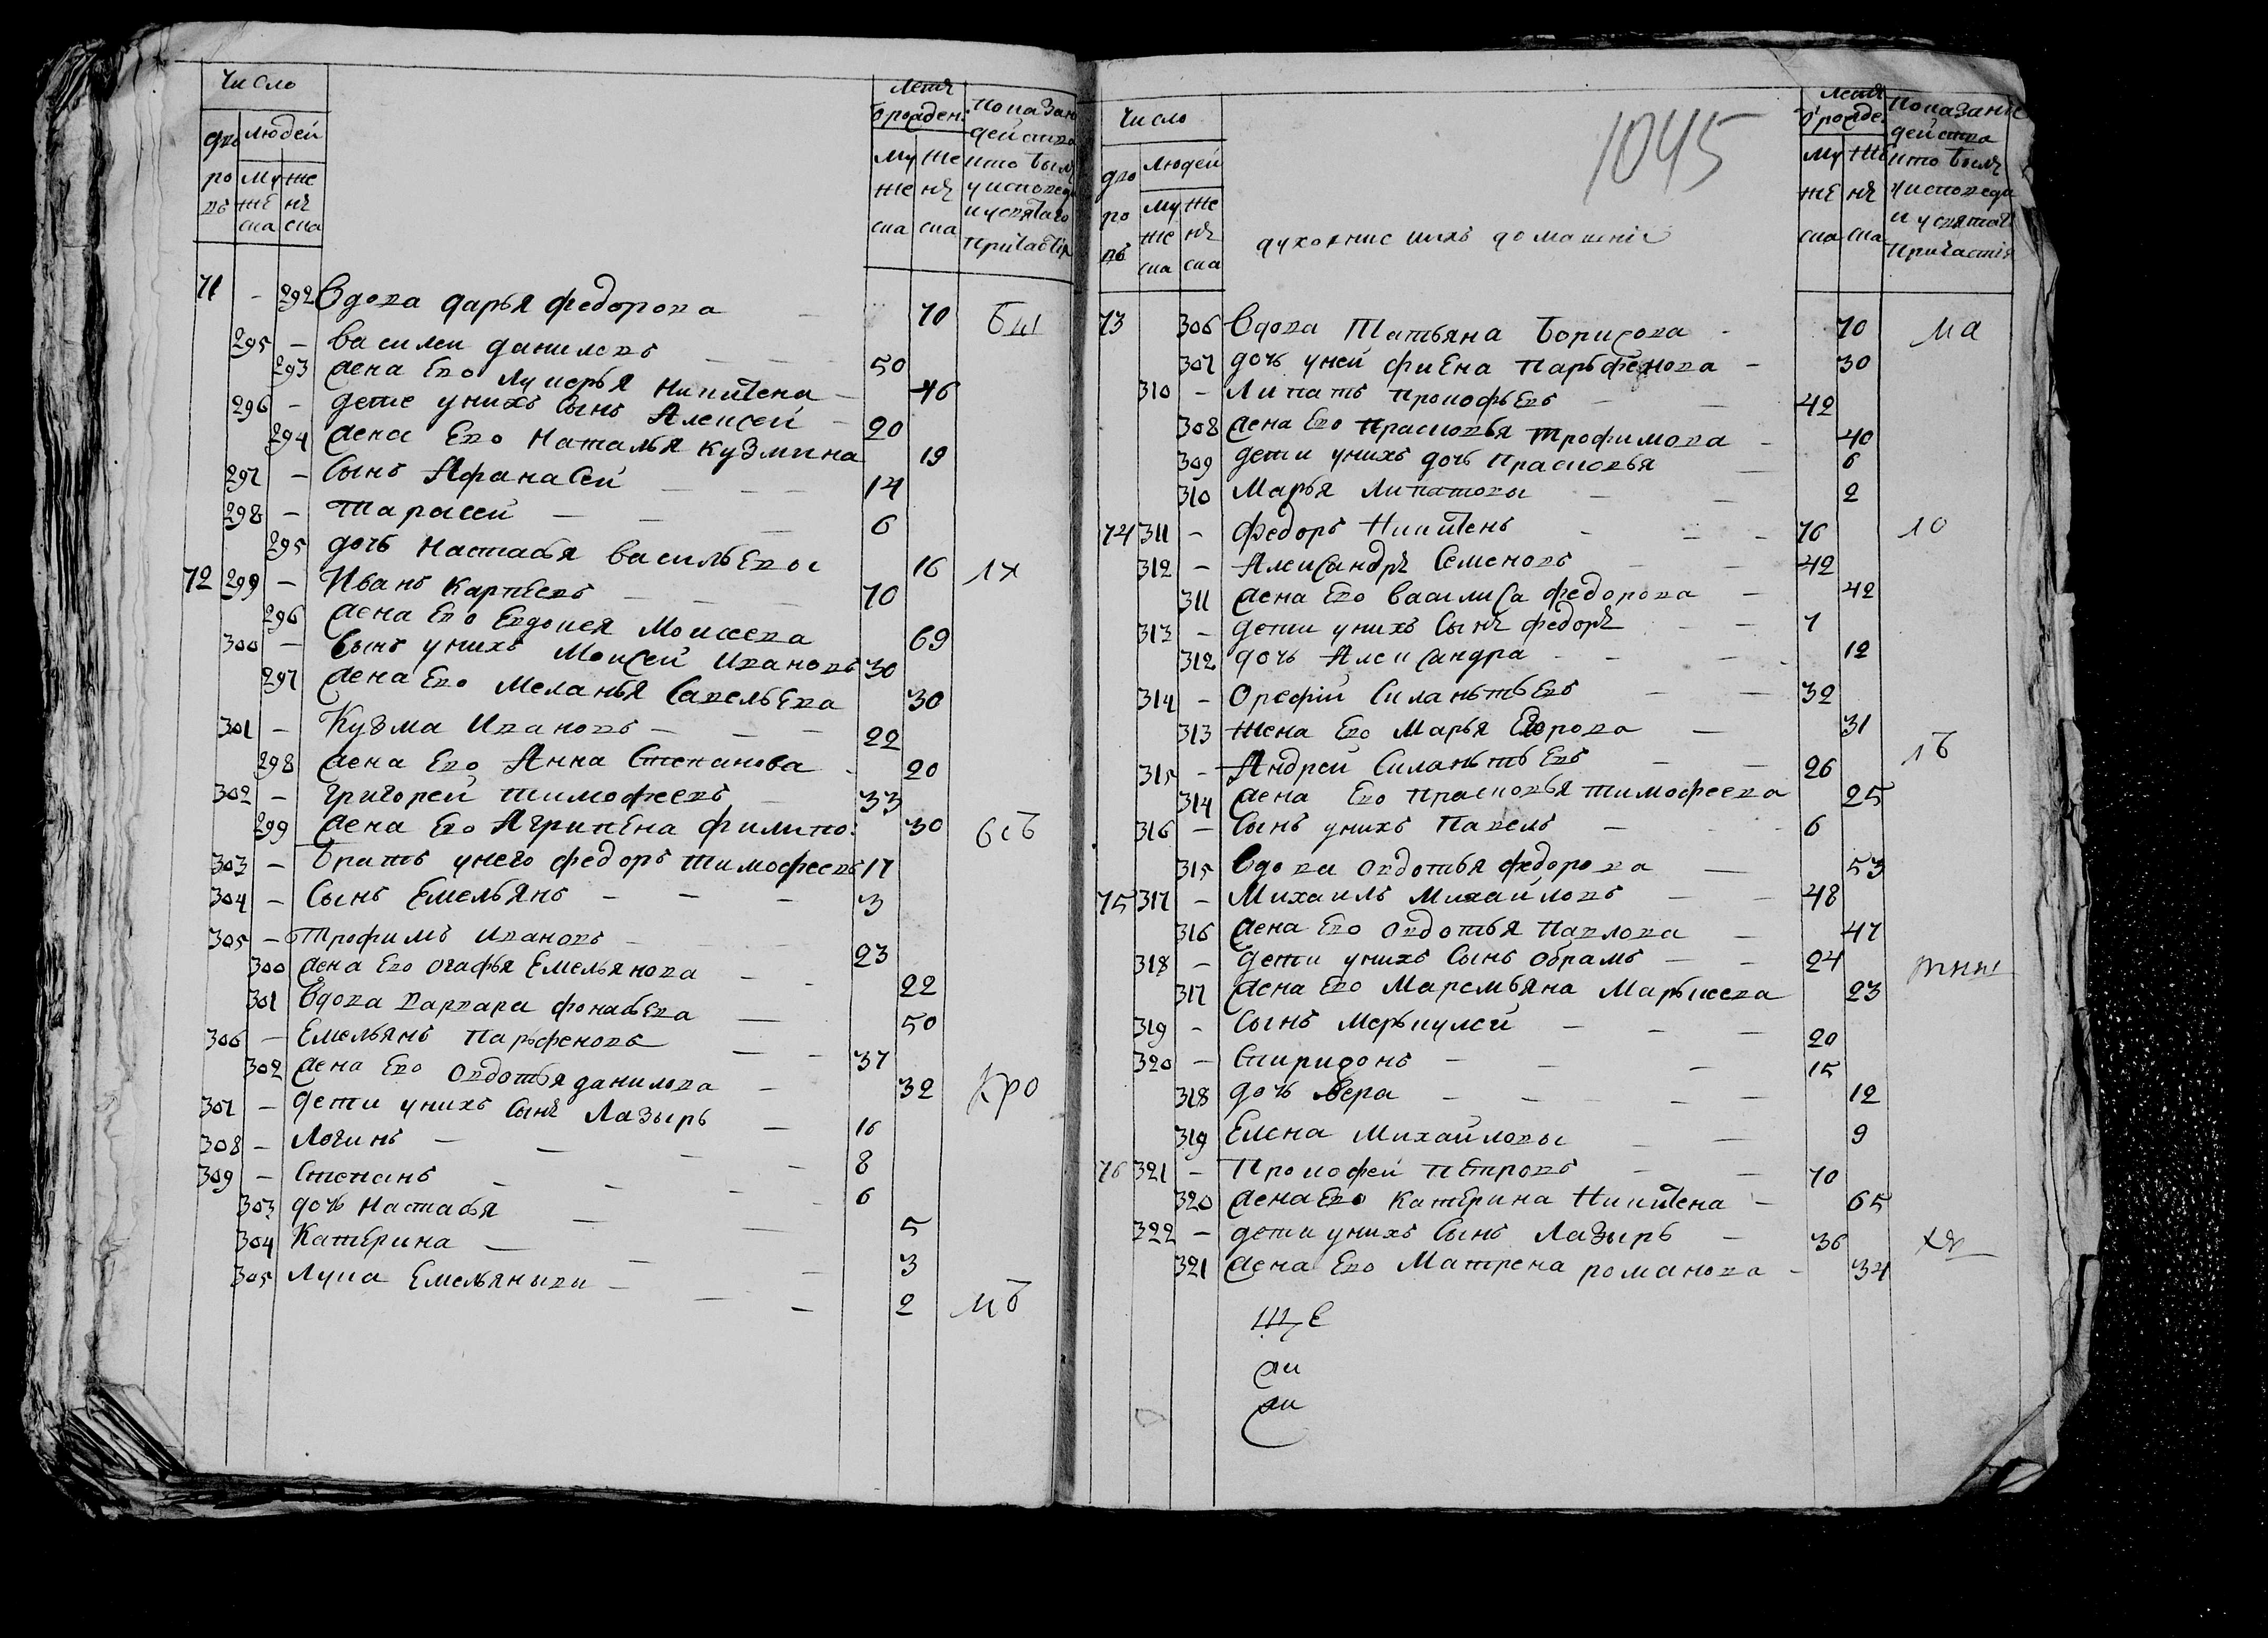 Число
дво
ро
въ
людей
му
же
ска
же
нс
ска
лета
ѿ рожден:
му
же
ска
же
нс
ска
показан
действа
кто былъ
у исповеди
и у святаго
причастія
71 - 292 вдова дарья федорова - 70
295 - василеи даниловъ - - - 50
293 жена Ево лукерья никитена - 46
296 - дете унихъ сынъ Алексей - 20
294 жена Ево наталья кузмина 19
297 - сынъ Афанасей - - - 14
298 - тарасей - - - 6
295 дочь настасья васильевы 16
72 299 - Иванъ карпеевъ - - - 70
296 жена Ево Евдокея Моисеева 69
300 - сынъ унихъ Моисей ивановъ 30
297 жена Ево меланья савельева 30
301 - Кузма ивановъ - - - 22
298 жена Ево Анна Степанова - 20
302 - григорей тимофеевъ - 33
299 жена Ево Агрипена филипо: 30
303 - братъ унего федоръ тимофеевъ 17
304 - сынъ Емельянъ - - - 3
305 - трофимъ ивановъ - - 23
300 жена Ево огафья Емельянова - - 22
301 вдова варвара фонасьева - 50
306 - Емельянъ парфеновъ - - 37
302 жена Ево овдотья данилова - 32
307 - дети унихъ сынъ Лазырь - 16
308 - Логинъ - - - - 8
309 - степанъ - - - - 6
303 дочь настасья - - 5
304 Катерина - - - 3
305 Лукa Емельяновы - - - 2
Число
дво
ро
въ
Людей
му
же
ска
же
нс
ска
1045
духовнис ихъ домашнiе
лета
ѿ рожде:
му
же
ска
же
нс
ска
показание
действа
кто былъ
у исповеди
и у святаг
причастія
73 306 вдова татьяна борисова - 70
307 дочь уней фиена парьфенова - 30
310 - Липатъ прокофьевъ - - 42
308 жена Ево прасковья трофимова - 40
309 дети унихъ дочь прасковья - 6
310 Марья липатовы - - 2
74 311 - федоръ никитенъ - - - 76
312 - Александръ Семеновъ - - 42
311 жена Ево василиса федорова - 42
313 - дети унихъ сынъ федоръ - - 7
312 дочь Александра - - - - 12
314 - Орефий силантьевъ - - 32
313 жена Ево марья Егорова - 31
315 - Андрей силантьевъ - - 26
314 жена Ево прасковья тимофеева 25
316 - сынъ унихъ павелъ - - - 6
315 вдова овдотья федорова - 53
75 317 - Михаилъ михайловъ - - 48
316 жена Ево овдотья павлова - 47
318 - дети унихъ сынъ обрамъ - - 24
317 жена Ево маремьяна марькеева 23
319 - сынъ меркулей - - - 20
320 - спиридонъ - - - 15
318 дочь вера - - - - - 12
319 Елена михайловы - - 9
76 321 - прокофей петровъ - - 70
320 жена Ево катерина никитена - 65
322 - дети унихъ сынъ лазырь - 36
321 жена Ево матрена романова - 34